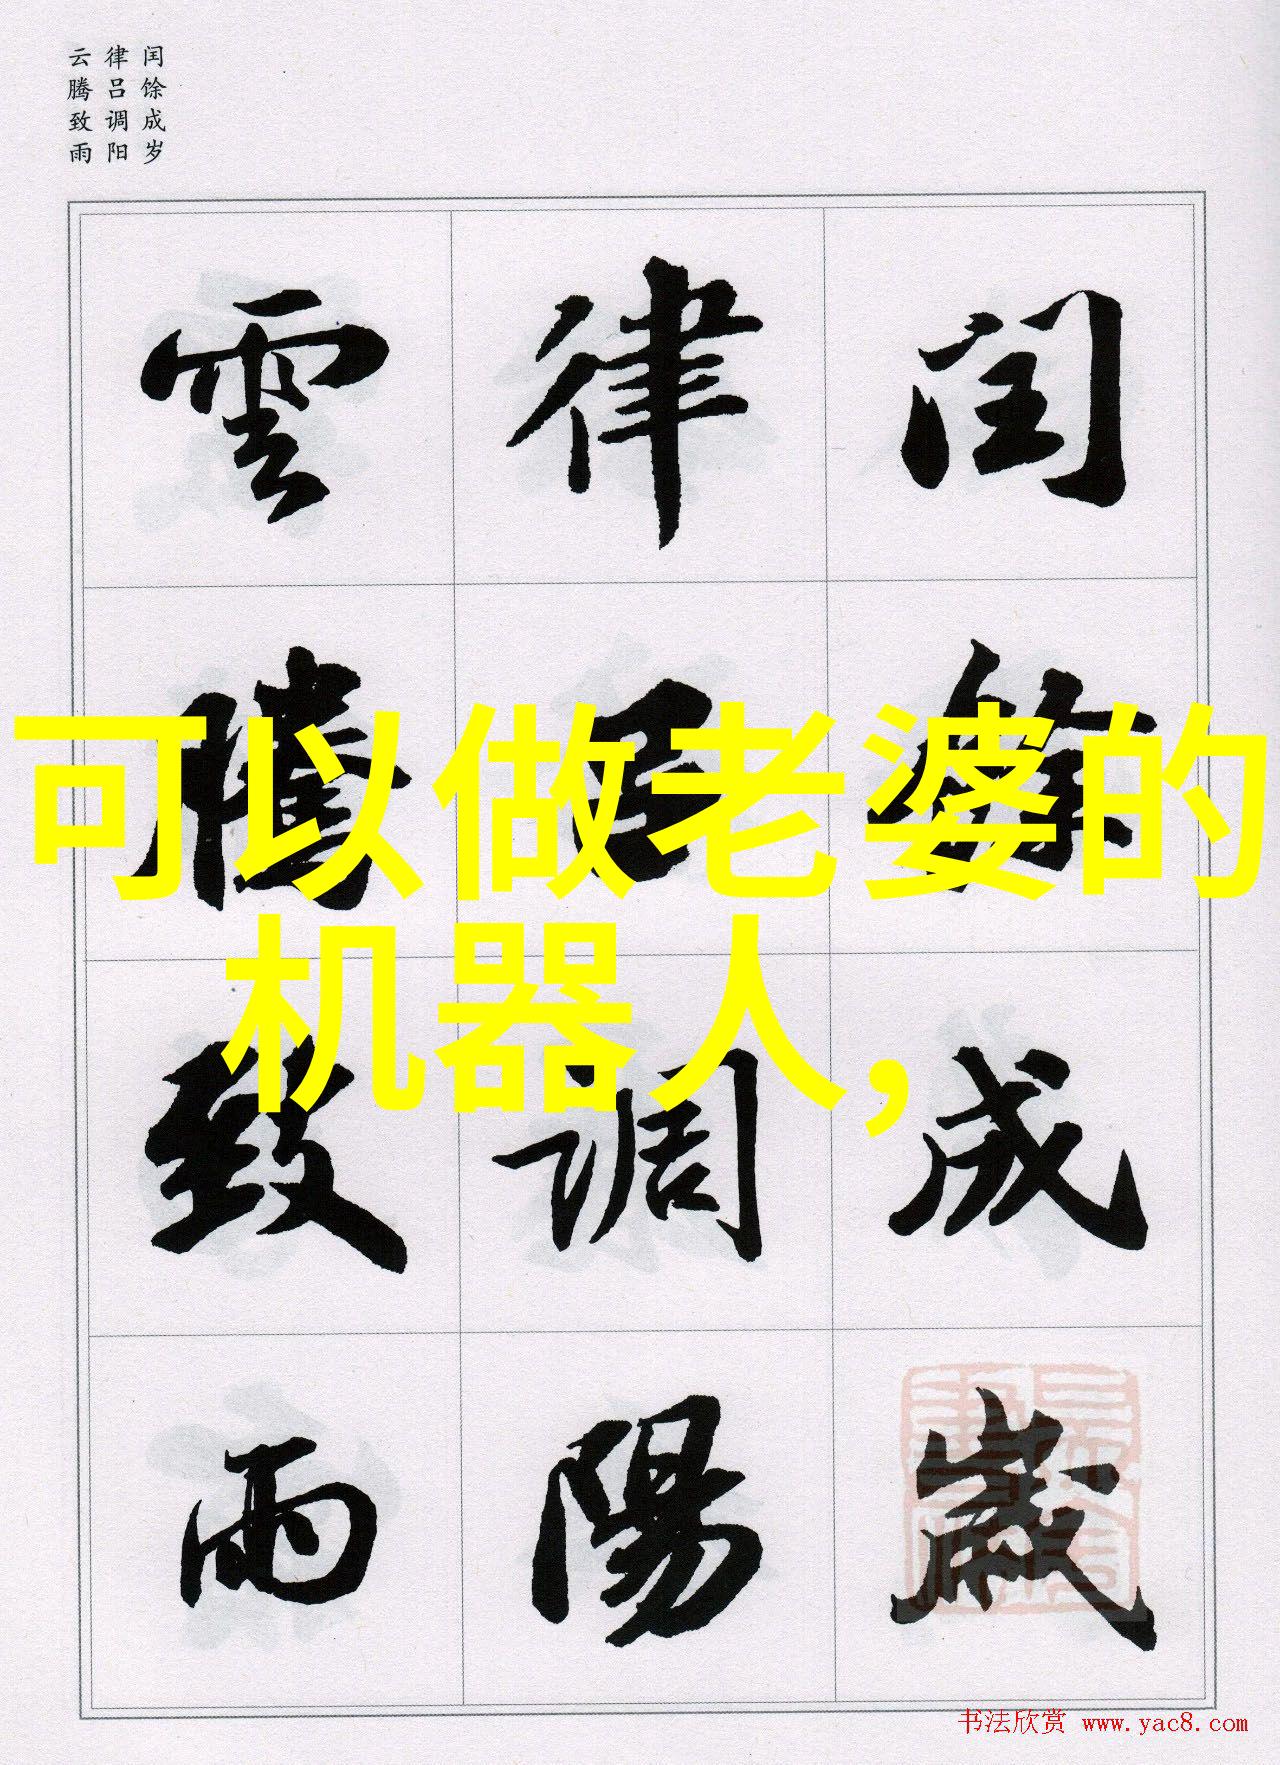 闰馀成岁
律吕调阳
云腾致雨
閏餘成歲
律吕調陽
雲騰致雨
可以做老婆的
机器人,
书法欣赏 www.yac8.com